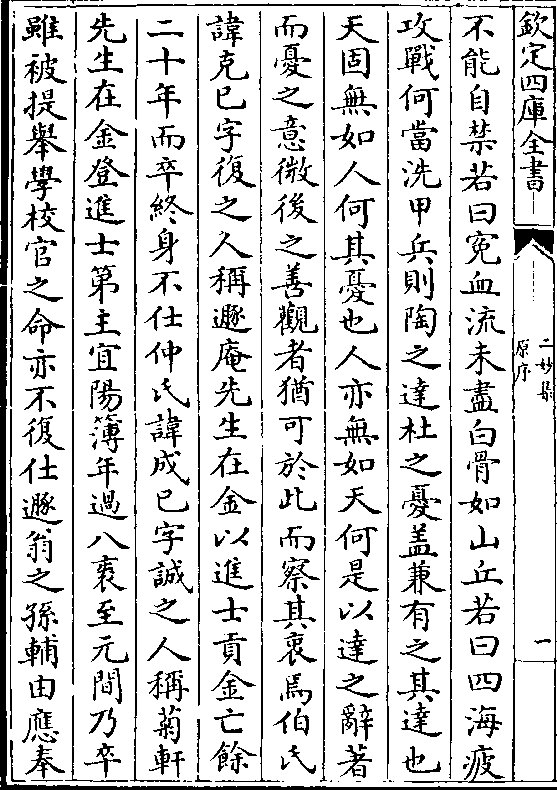 欽定四庫全書
二妙集
原序
一
不能自禁若曰寃血流未盡白骨如山丘若曰四海疲
攻戰何當洗甲兵則陶之達杜之憂盖兼有之其達也
天固無如人何其憂也人亦無如天何是以達之辭著
而憂之意微後之善觀者猶可於此而察其衷焉伯氏
諱克已字復之人稱遯庵先生在金以進士貢金亡餘
二十年而卒終身不仕仲氏諱成已字誠之人稱菊軒
先生在金登進士第主宜陽簿年過八袠至元間乃卒
雖被提舉學校官之命亦不復仕遯翁之孫輔由應奉